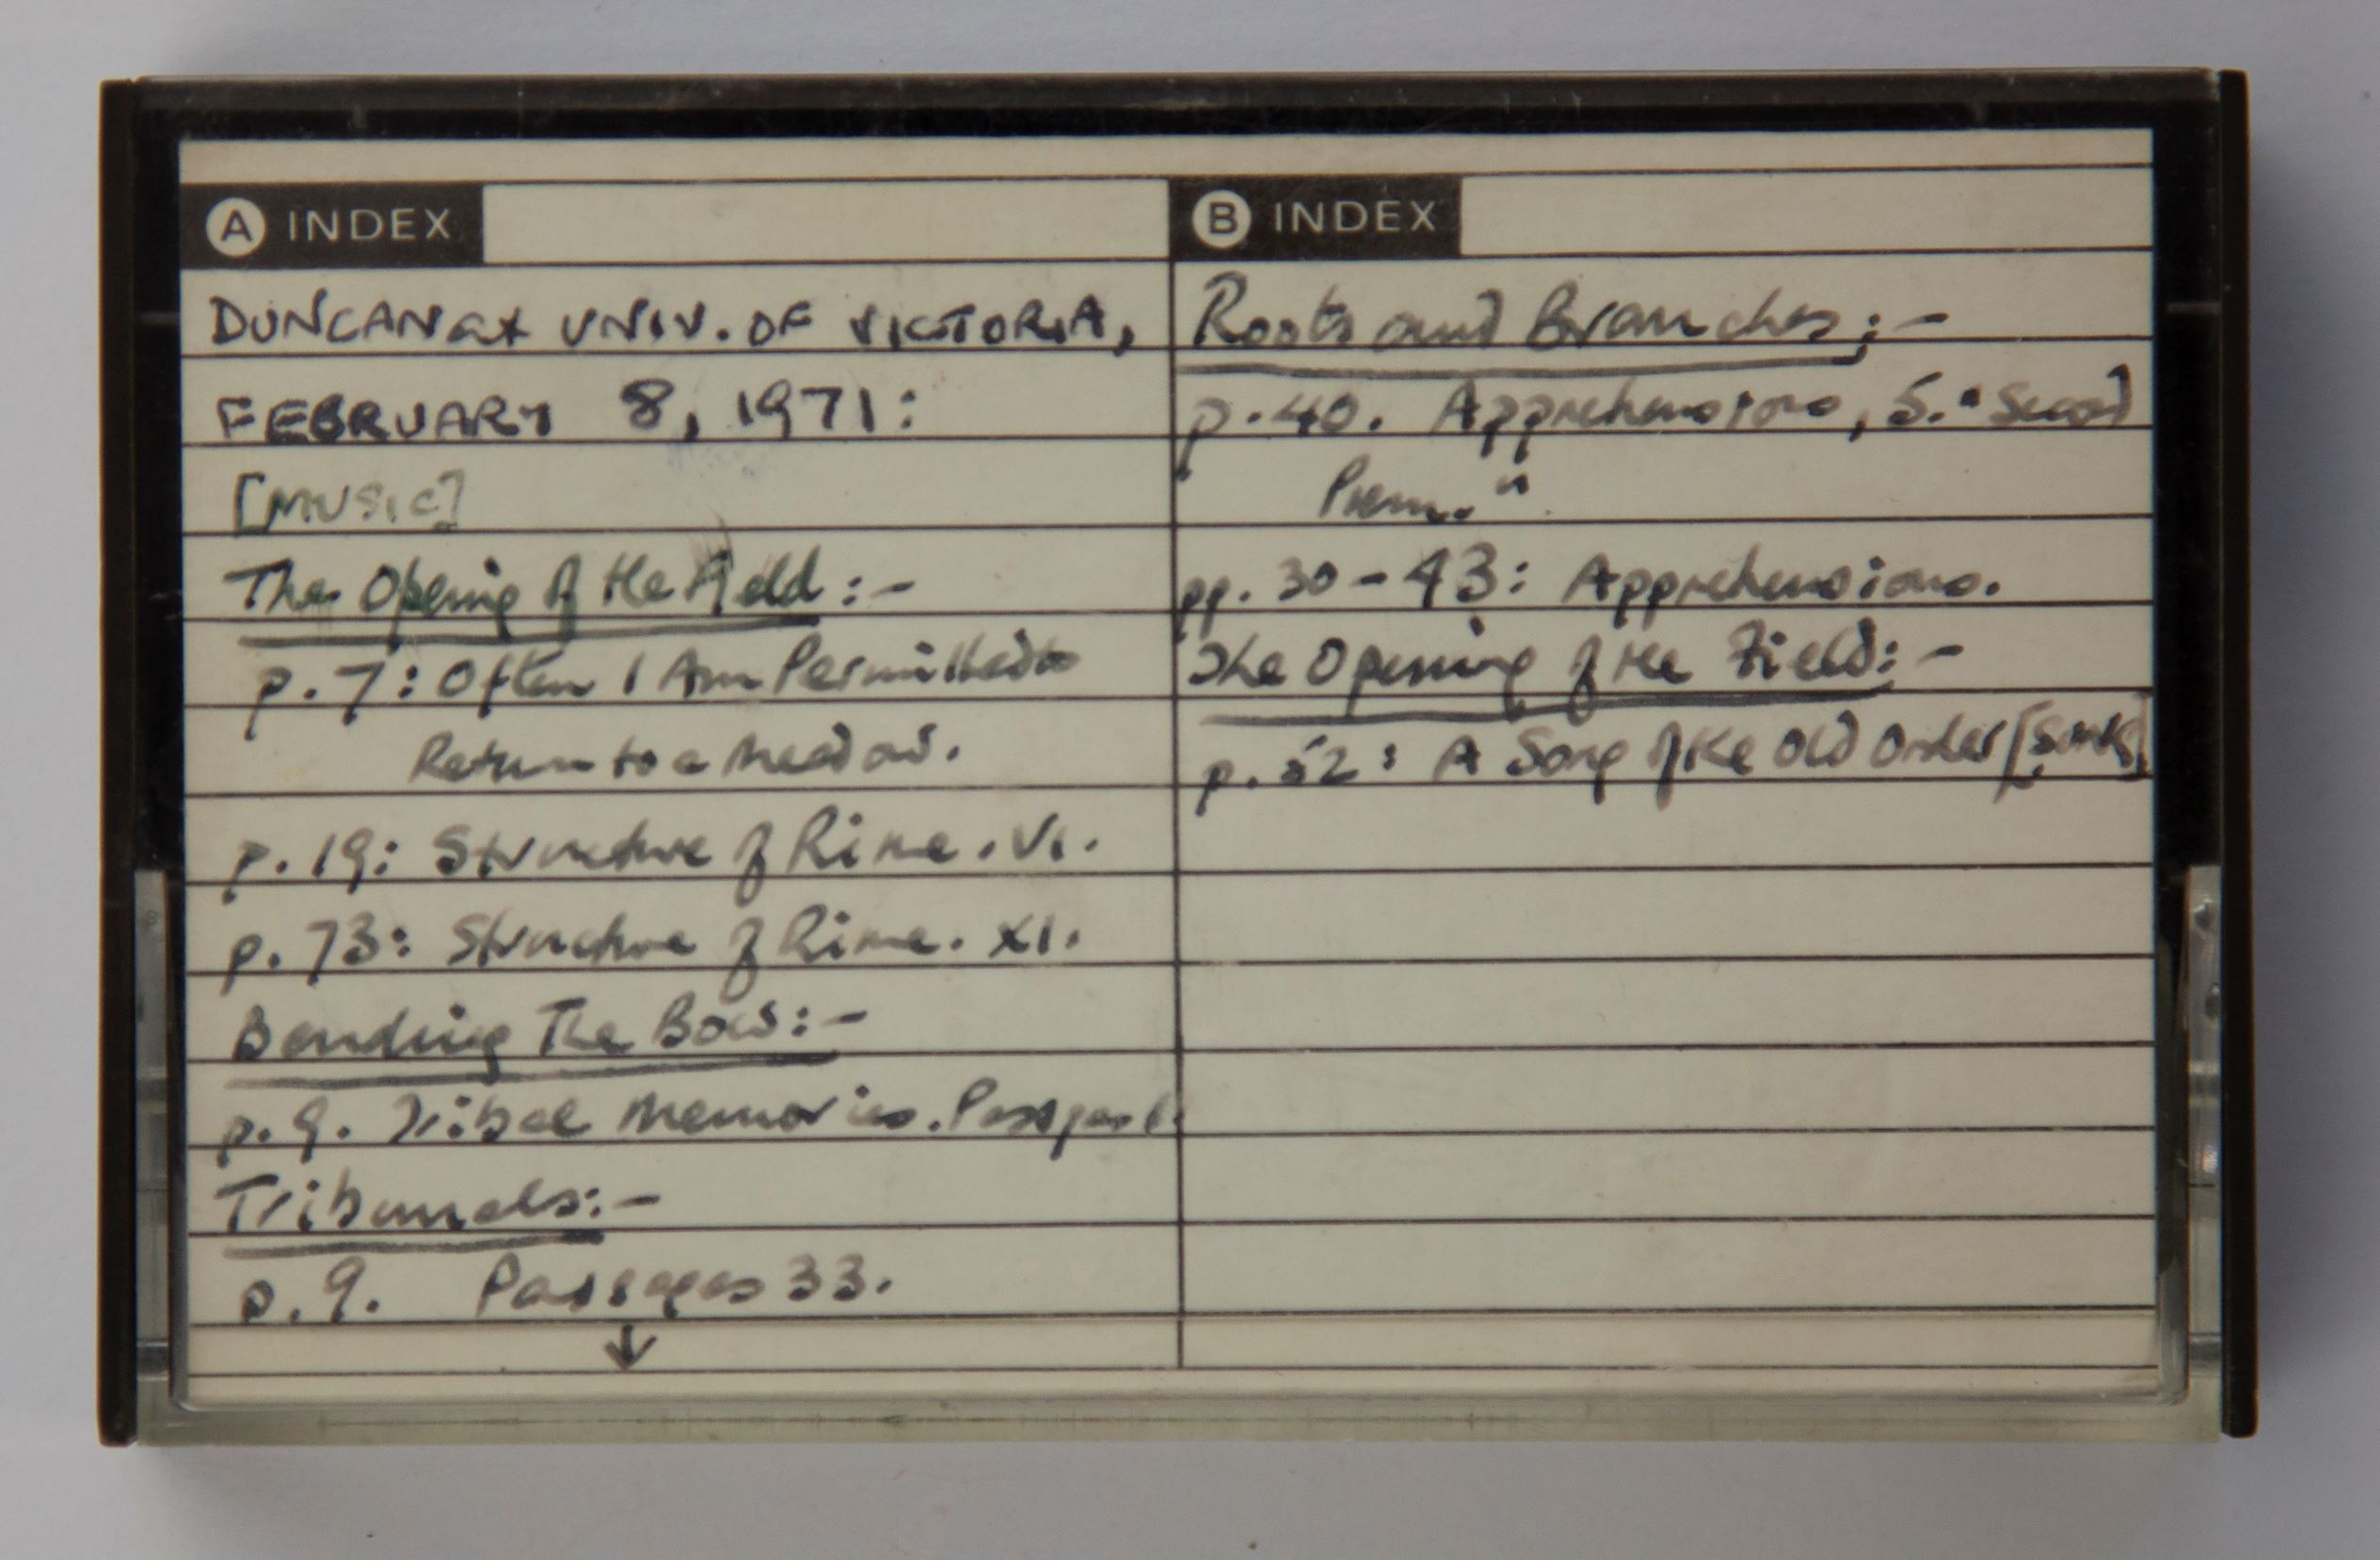 A INDEX
DUNCAN at UNIV. OF VICTORIA,
FEBRUARY 8, 1971:
[MUSIC]
The Opening of the Field:-
p. 7: Often I Am Permitted to
Return to a Meadow.
p. 19: Structure of Rime. VI.
p. 73: Structure of Rime. XI.
Bending The Bow:-
p. 9. Tribal Memories. Passages 1.
Tribunals:-
p. 9. Passages 33.
↓
B INDEX
Roots and Branches:-
p. 40. Apprehensions, 5. "Second
Poem."
pp. 30-43: Apprehensions.
The Opening of the Field:-
p. 52: A Song of the Old Order